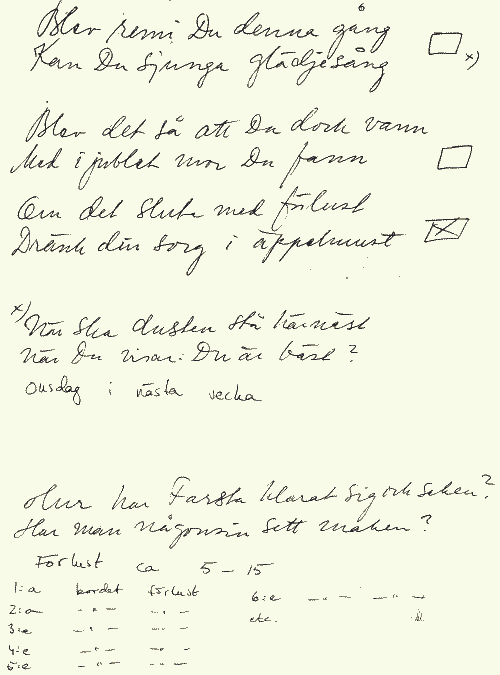 Blev remi Du denna gång
Kan Du sjunga glädjesång x)
Blev det så att Du dock vann
Med i jublet mor Du fann
Om det sluta med förlust
Dränk din sorg i äppelmust
x) När ska dusten stå härnäst
när Du visar: Du är bäst?
Onsdag i nästa vecka
Hur har Farsta klarat sig och saken?
Har man någonsin sett maken?
Förlust ca 5-15
1:a bordet förlust
2:a -"- -"-
3:e -"- -"-
4:e -"- -"-
5:e -"- -"-
6:e -"- -"-
etc.